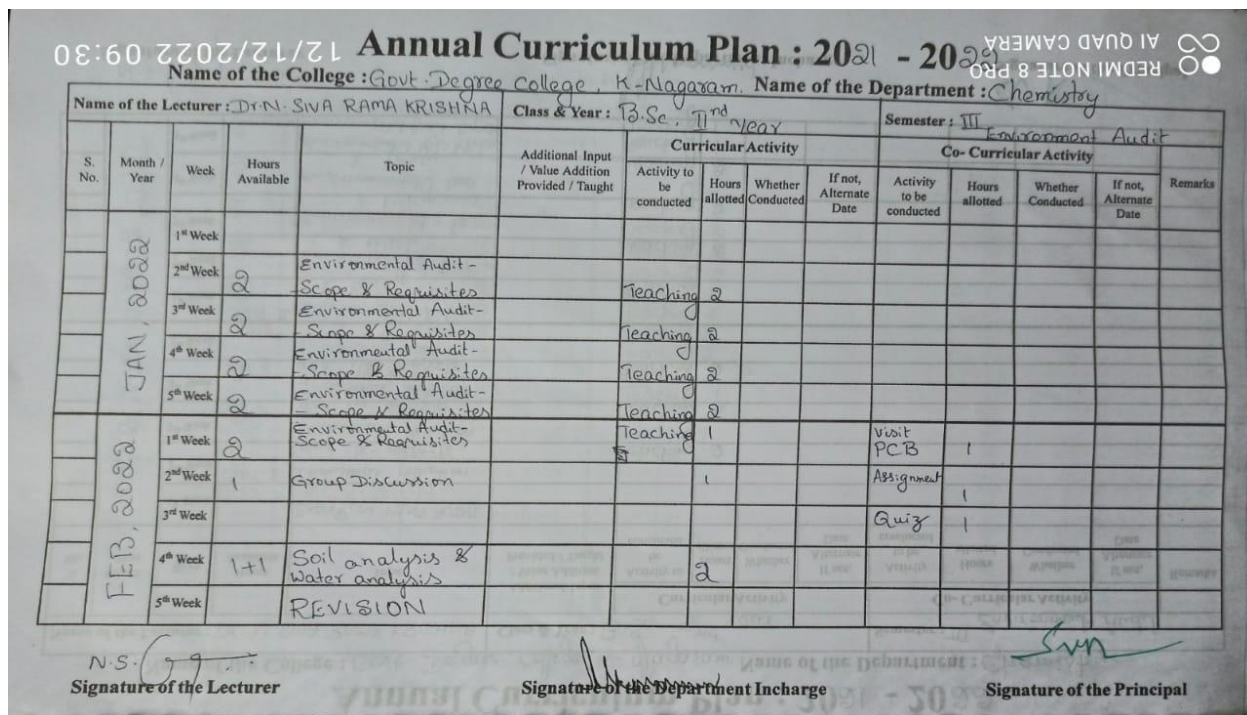 12/12/2022 09:30
REDMI NOTE 8 PRO
AI QUAD CAMERA
Annual Curriculum Plan : 2021 - 2022
Name of the College : Govt. Degree College, K-Nagaram. Name of the Department : Chemistry
Name of the Lecturer : Dr. N. SIVA RAMA KRISHNA Class & Year : B.Sc, IInd year Semester : III
Environment Audit
S. No. Month / Year Week Hours Available Topic Additional Input / Value Addition Provided / Taught Curricular Activity Co- Curricular Activity Remarks
Activity to be conducted Hours allotted Whether Conducted If not, Alternate Date Activity to be conducted Hours allotted Whether Conducted If not, Alternate Date
JAN, 2022
1st Week
2nd Week 2 Environmental Audit -
- Scope & Requisites Teaching 2
3rd Week 2 Environmental Audit-
- Scope & Requisites Teaching 2
4th Week 2 Environmental Audit -
- Scope & Requisites Teaching 2
5th Week 2 Environmental Audit -
- Scope & Requisites Teaching 2
FEB, 2022
1st Week 2 Environmental Audit- Teaching 1 Visit
Scope & Requisites PCB 1
2nd Week 1 Group Discussion 1 Assignment 1
3rd Week Quiz 1
4th Week 1+1 Soil analysis & 2
Water analysis
5th Week REVISION
N.S.
Signature of the Lecturer Signature of the Department Incharge Signature of the Principal